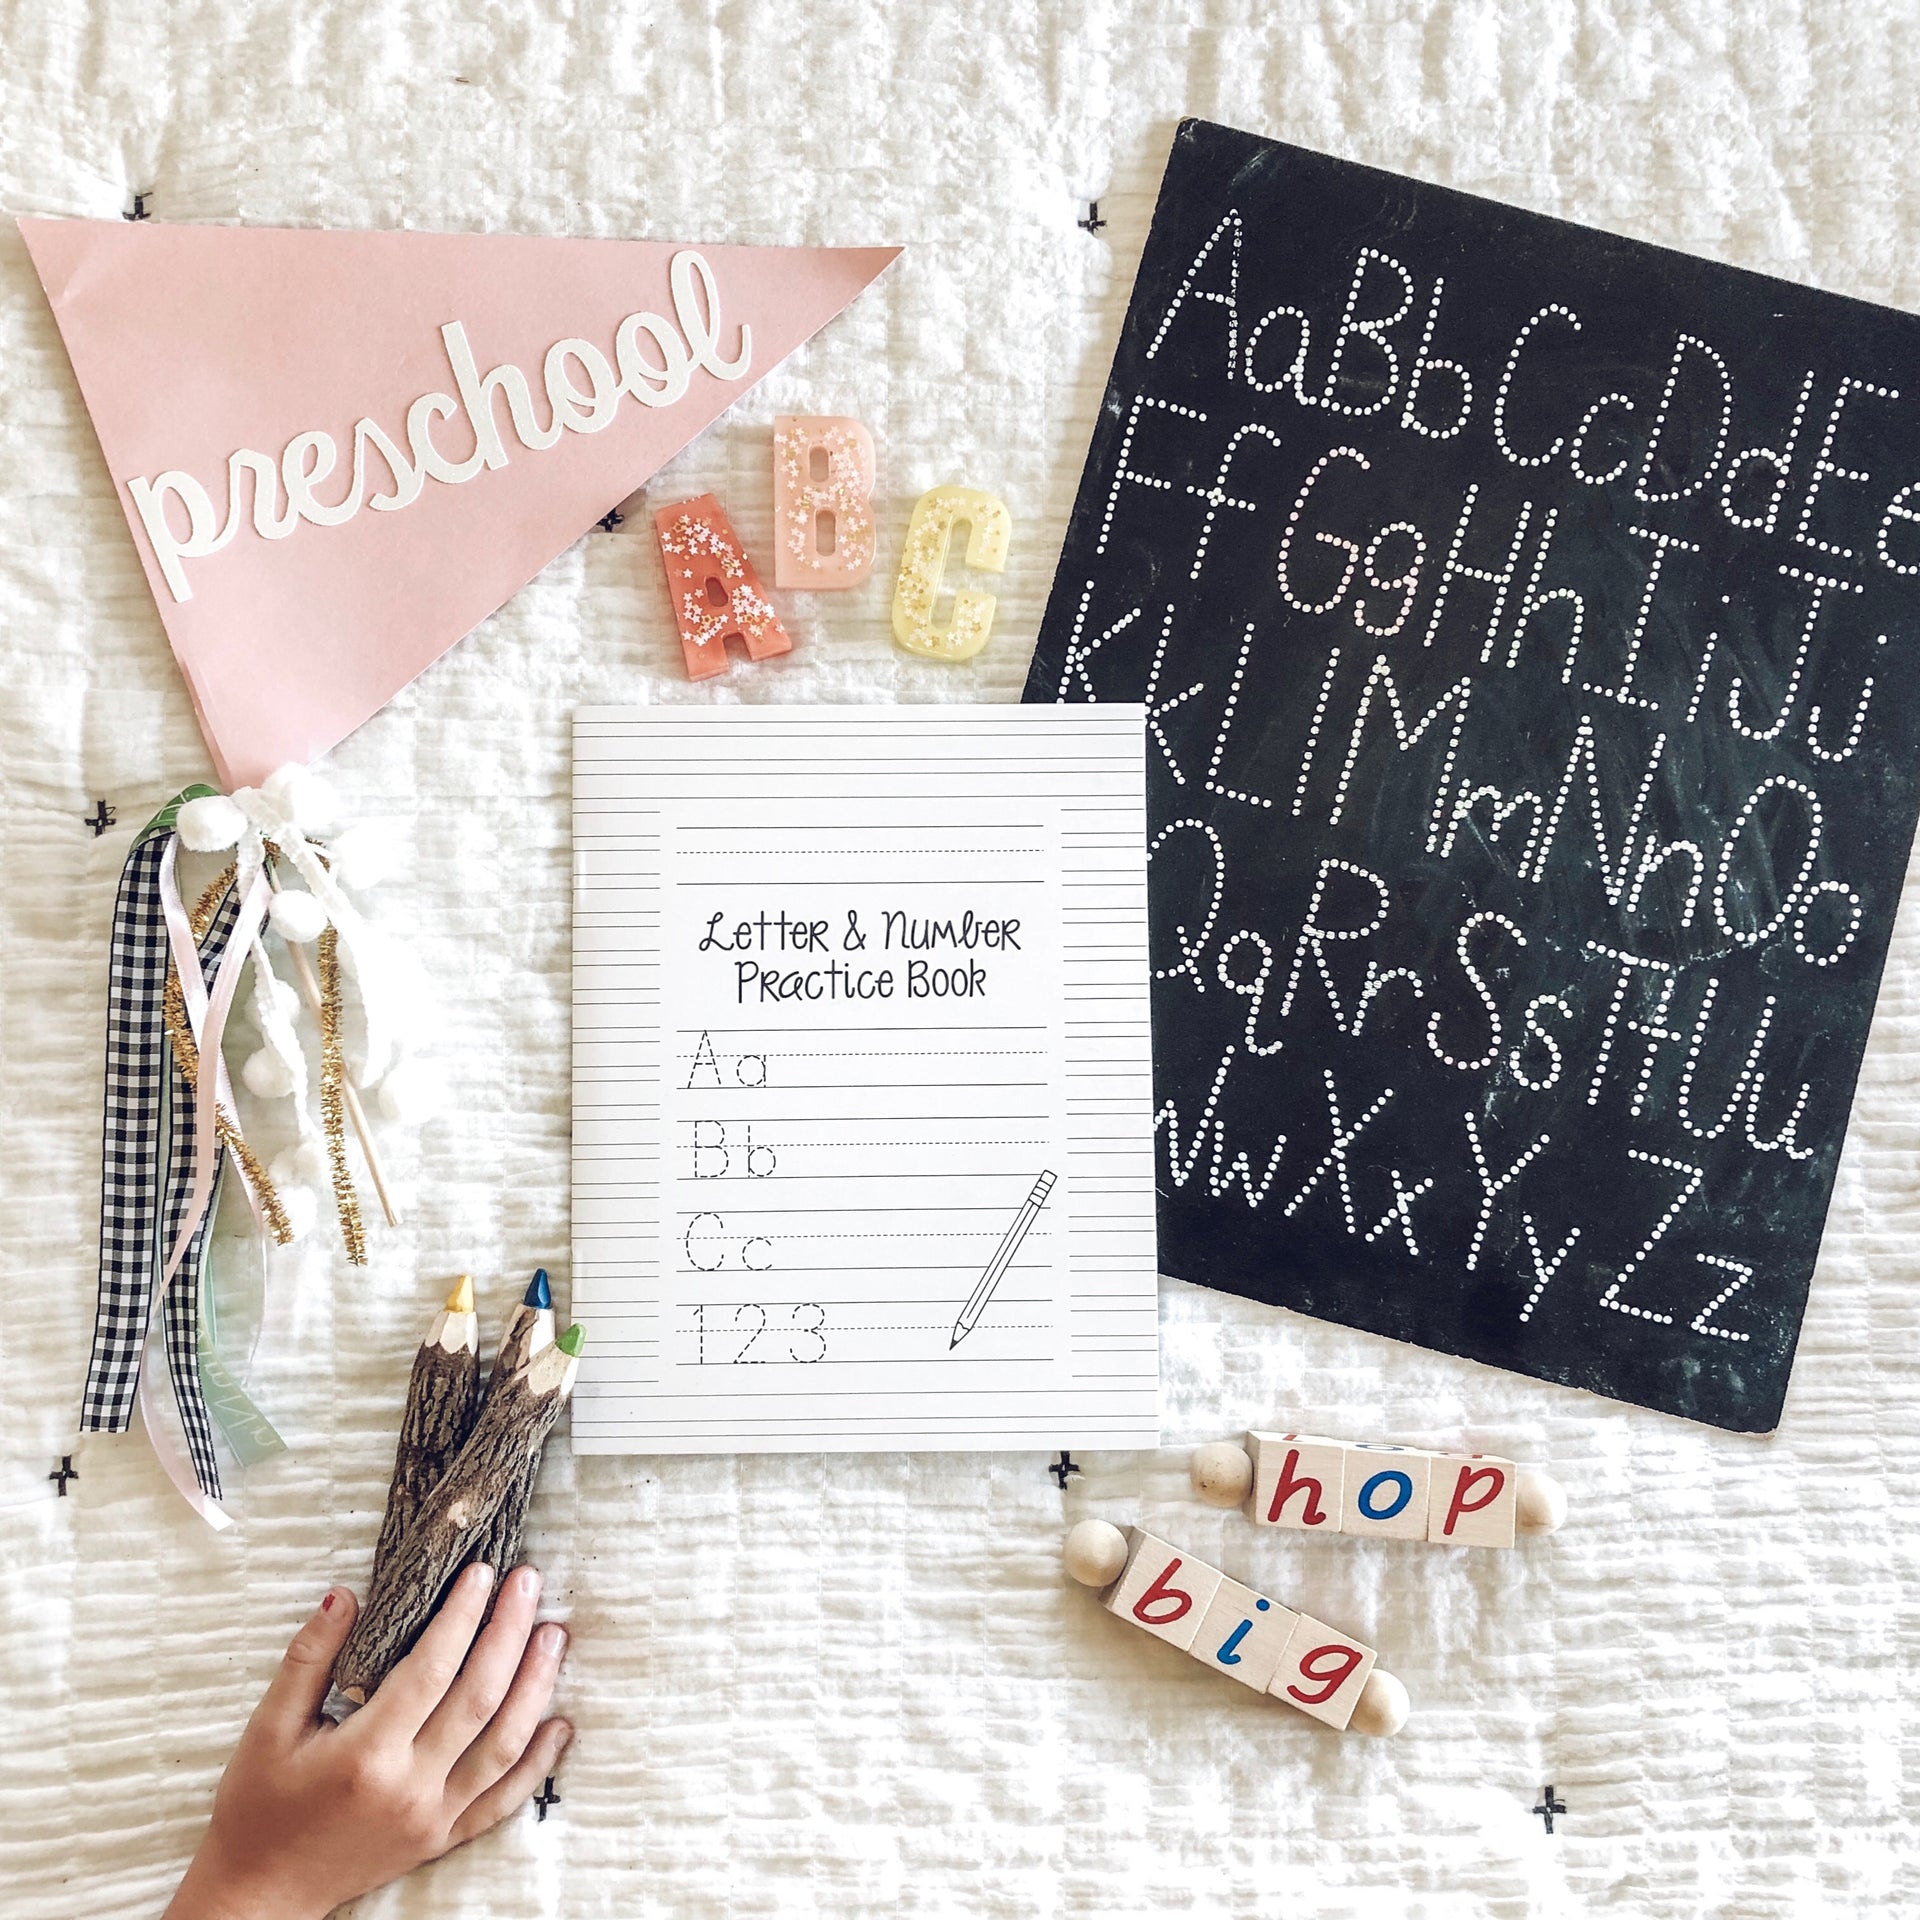 preschool
A B C
Aa Bb Cc Dd Ee
Ff Gg Hh Ii Jj
Kk Ll Mm Nn Oo
Qq Rr Ss Tt Uu
Ww Xx Yy Zz
Letter & Number
Practice Book
Aa
Bb
Cc
123
hop
big